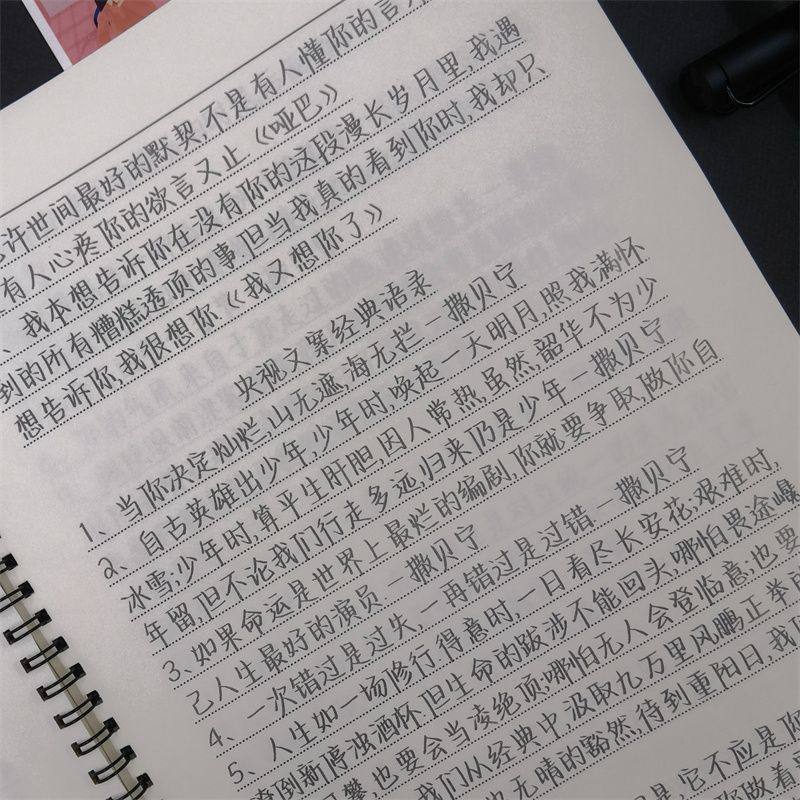 许世间最好的默契,不是有人懂你的言
有人心疼你的欲言又止《哑巴》
、我本想告诉你在没有你的这段漫长岁月里,我遇
到的所有糟糕透顶的事.但当我真的看到你时,我却只
想告诉你,我很想你《我又想你了》
央视文案经典语录
1、当你决定灿烂,山无遮,海无拦 — 撒贝宁
2、自古英雄出少年,少年时,唤起一天明月,照我满怀
冰雪;少年时,算平生肝胆,因人常热,虽然,韶华不为少
年留,但不论我们行走多远,归来仍是少年 — 撒贝宁
3、如果命运是世界上最烂的编剧,你就要争取,做你自
己人生最好的演员 — 撒贝宁
4、一次错过是过失,一再错过是过错 — 撒贝宁
5、人生如一场修行.得意时,一日看尽长安花;艰难时,
潦倒新停浊酒杯.但生命的跋涉不能回头,哪怕畏途巉
攀,也要会当凌绝顶;哪怕无人会登临意,也要
我们从经典中,汲取九万里风鹏正举
也无晴的豁然,待到重阳日,我
是,它不应是你
你做着